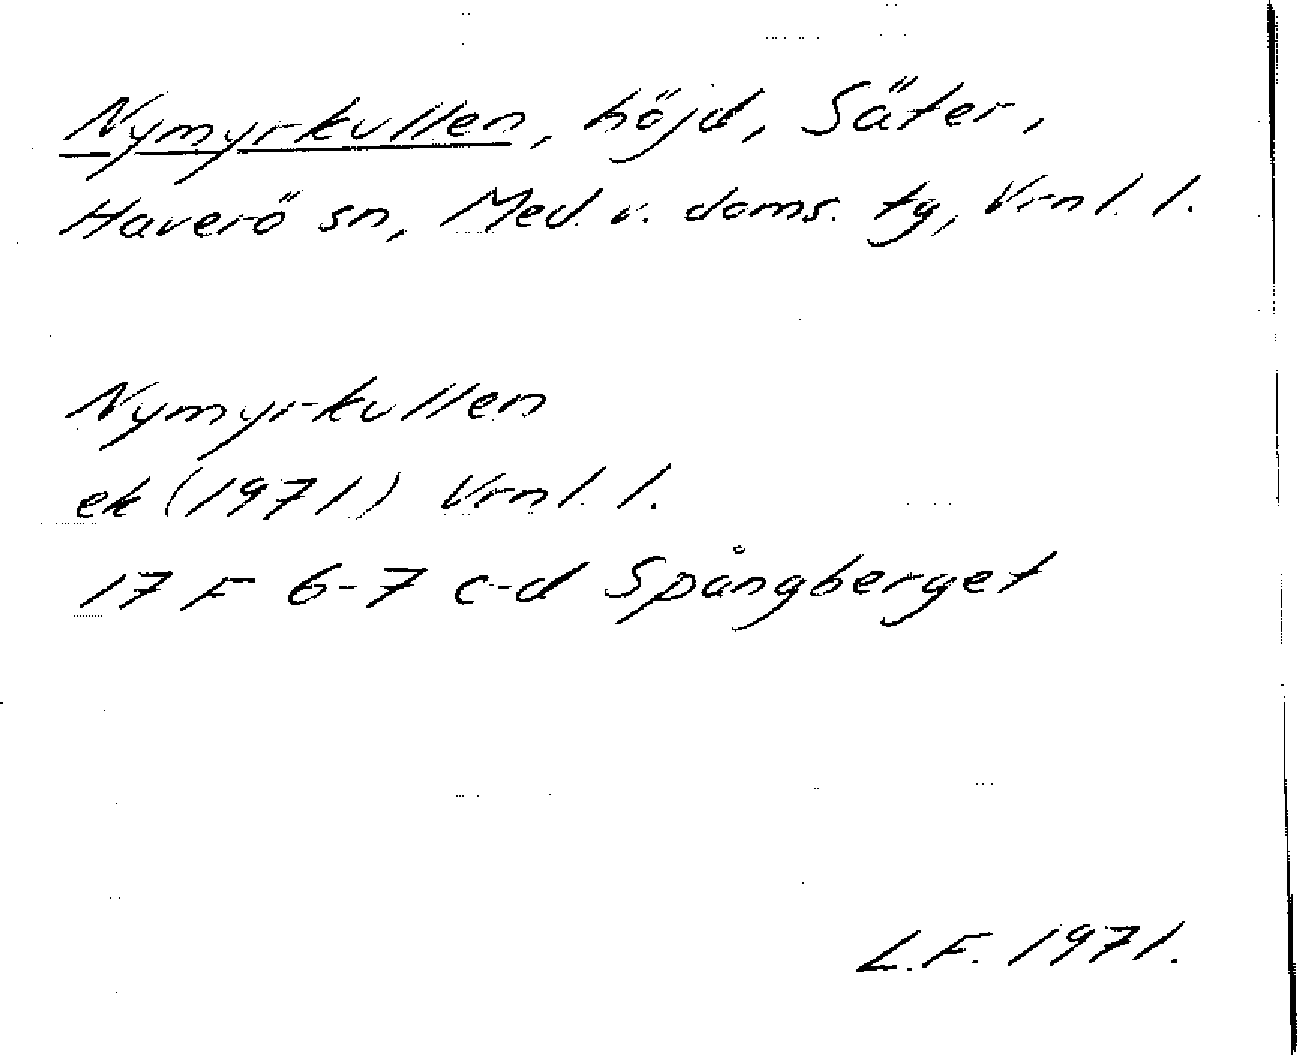 Nymyrkullen, höjd, Säter,
Haverö sn, Med. v. doms. tg, Vrnl. l.
Nymyrkullen
ek (1971) Vrnl. l.
17 F 6-7 c-d Spångberget
L.F. 1971.